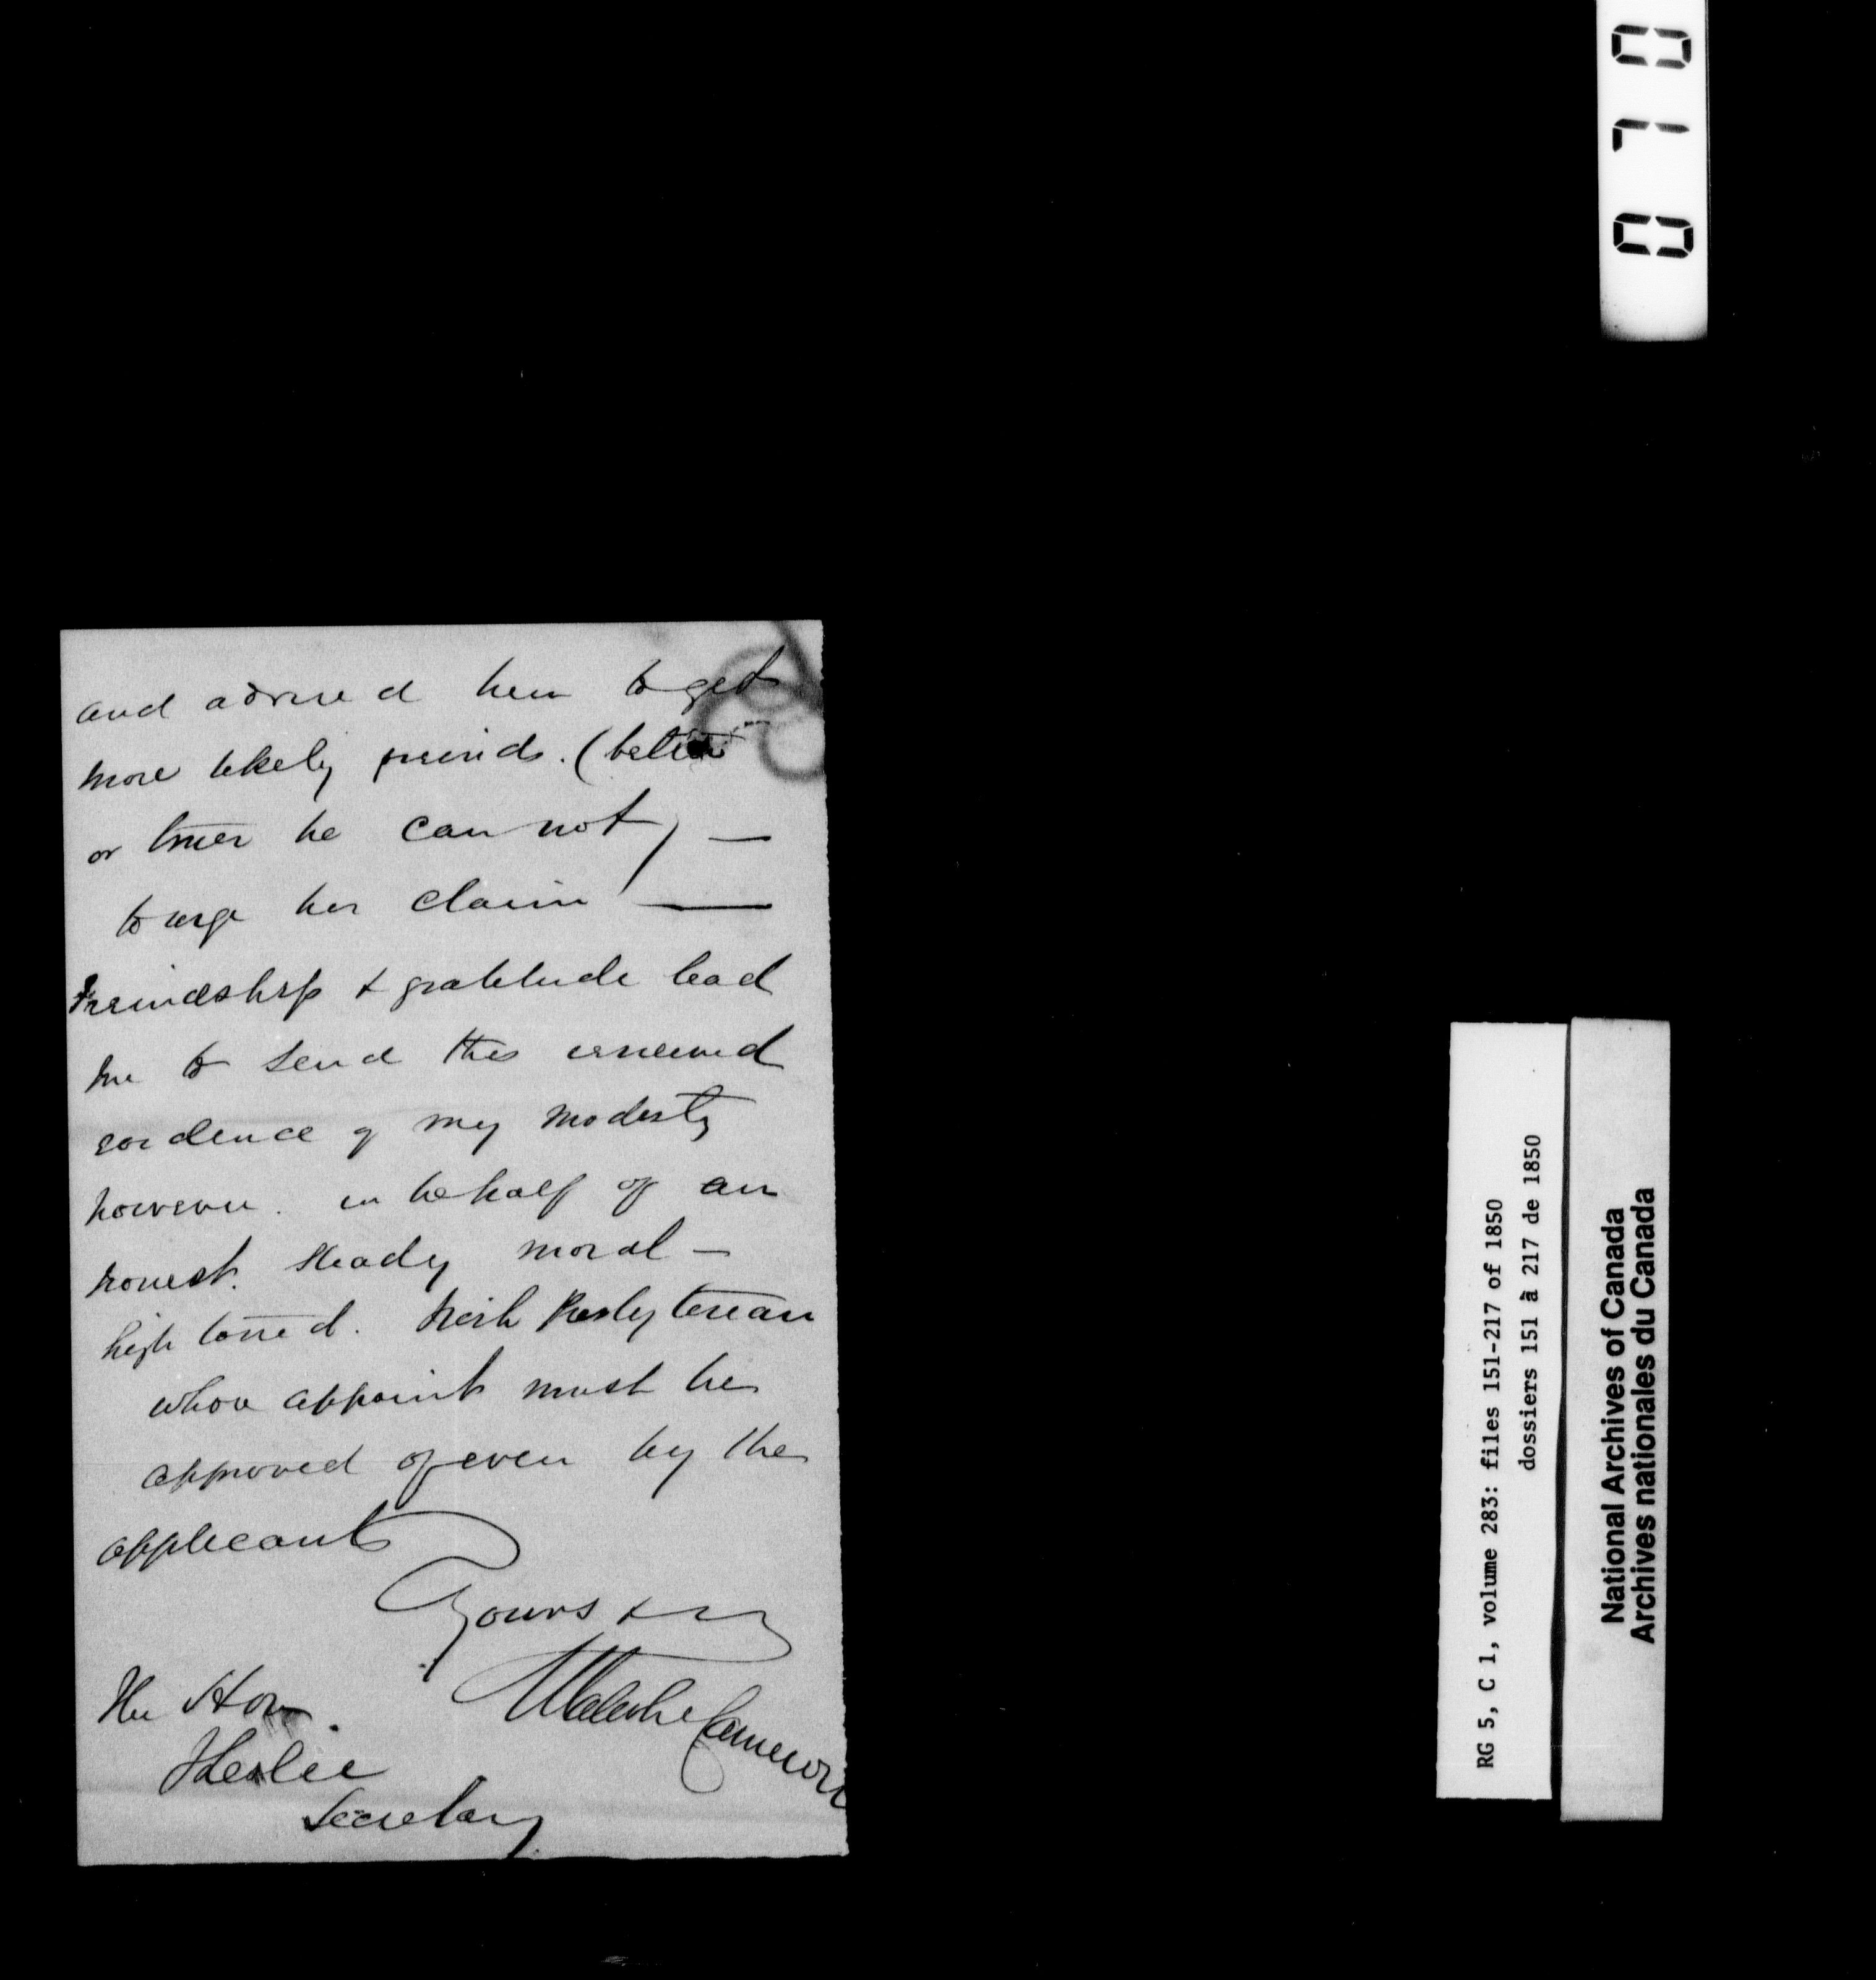 and advised him to get
more likely freinds. (better
or truer he can not) —
to urge his claim —
Freindship & gratitude lead
me to send this
evidence of my modesty
however. in behalf of an
honest. steady moral —
high toned. Irish Presbyterian
whose appoint must be
approved of even by the
applicants
Yours &
Malcolm Cameron
The Hon.
J Leslie
Secretary
0 7 0
RG 5, C 1, volume 283: files 151-217 of 1850
dossiers 151 à 217 de 1850
National Archives of Canada
Archives nationales du Canada